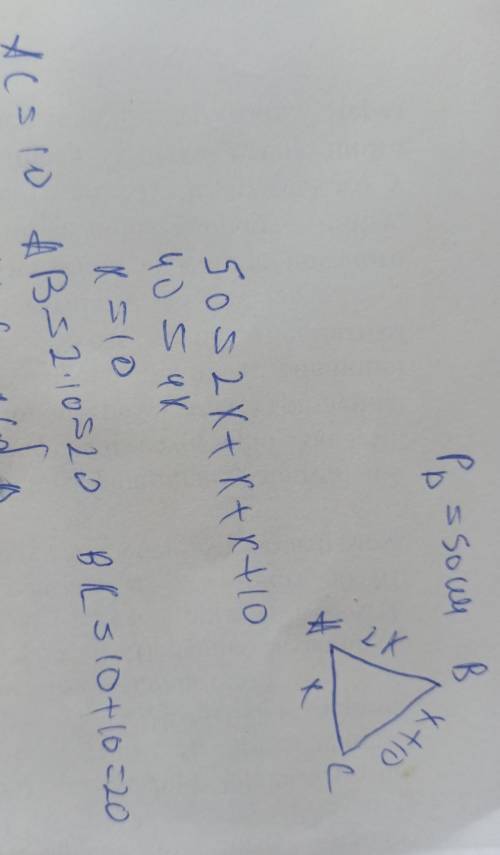 P_Δ = 50 см
B
A
C
2x
x
x+10
50 = 2x + x + x + 10
40 = 4x
x = 10
AC = 10 AB = 2·10 = 20 BC = 10 + 10 = 20